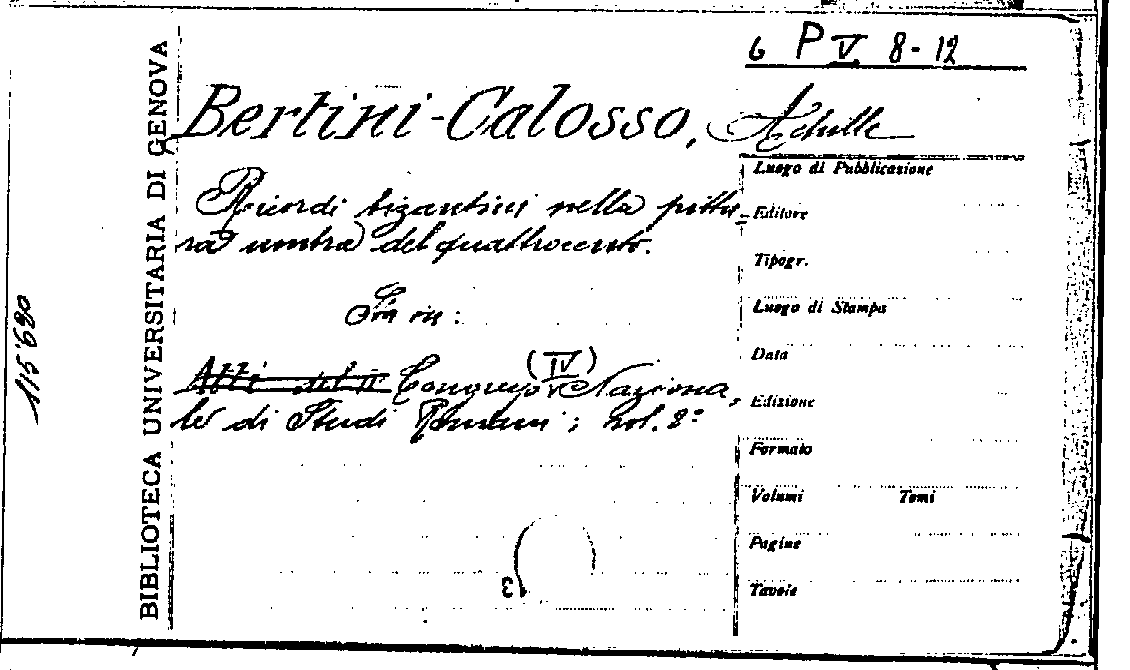 6 P V 8-12
Bertini-Calosso, Achille
Ricordi bizantini nella pittu-
ra umbra del quattrocento.
Sta in:
Atti del II Congresso (IV) Naziona-
le di Studi Romani; vol. 2º
Luogo di Pubblicazione
Editore
Tipogr.
Luogo di Stampa
Data
Edizione
Formato
Volumi Tomi
Pagine
Tavole
BIBLIOTECA UNIVERSITARIA DI GENOVA
115680